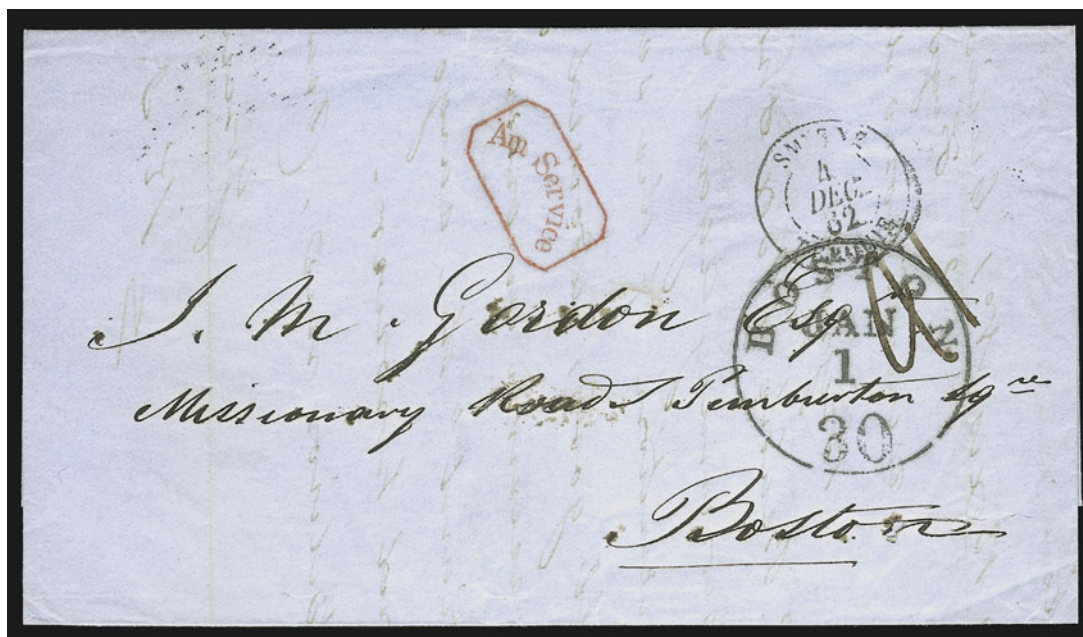 Am Service
SMYRNE
4
DEC.
62
BOSTON
JAN
1
30
J. M. Gordon Esqr
Missionary Road Pemburton Sqre
Boston